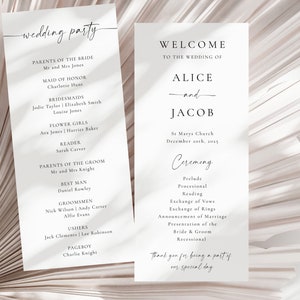 wedding party
PARENTS OF THE BRIDE
Mr and Mrs Jones
MAID OF HONOR
Charlotte Hunt
BRIDESMAIDS
Jodie Taylor | Elizabeth Smith
Louise Jones
FLOWER GIRLS
Ava Jones | Harriet Baker
READER
Sarah Carver
PARENTS OF THE GROOM
Mr and Mrs Knight
BEST MAN
Daniel Rowley
GROOMSMEN
Nick Wilson | Andy Carver
Alfie Evans
USHERS
Jack Clements | Lee Robinson
PAGEBOY
Charlie Knight
WELCOME
TO THE WEDDING OF
ALICE
and
JACOB
St Marys Church
December 20th, 2025
Ceremony
Prelude
Processional
Reading
Exchange of Vows
Exchange of Rings
Announcement of Marriage
Presentation of the
Bride & Groom
Recessional
thank you for being a part of
our special day